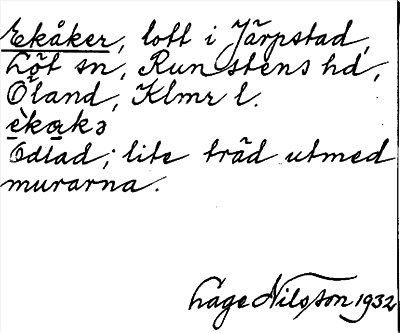 Ekåker, lott i Järpstad,
Löt sn, Runstens hd,
Öland, Klmr l.
è̱ka̱kə
Odlad; lite träd utmed
murarna.
Låge Nilsson 1932